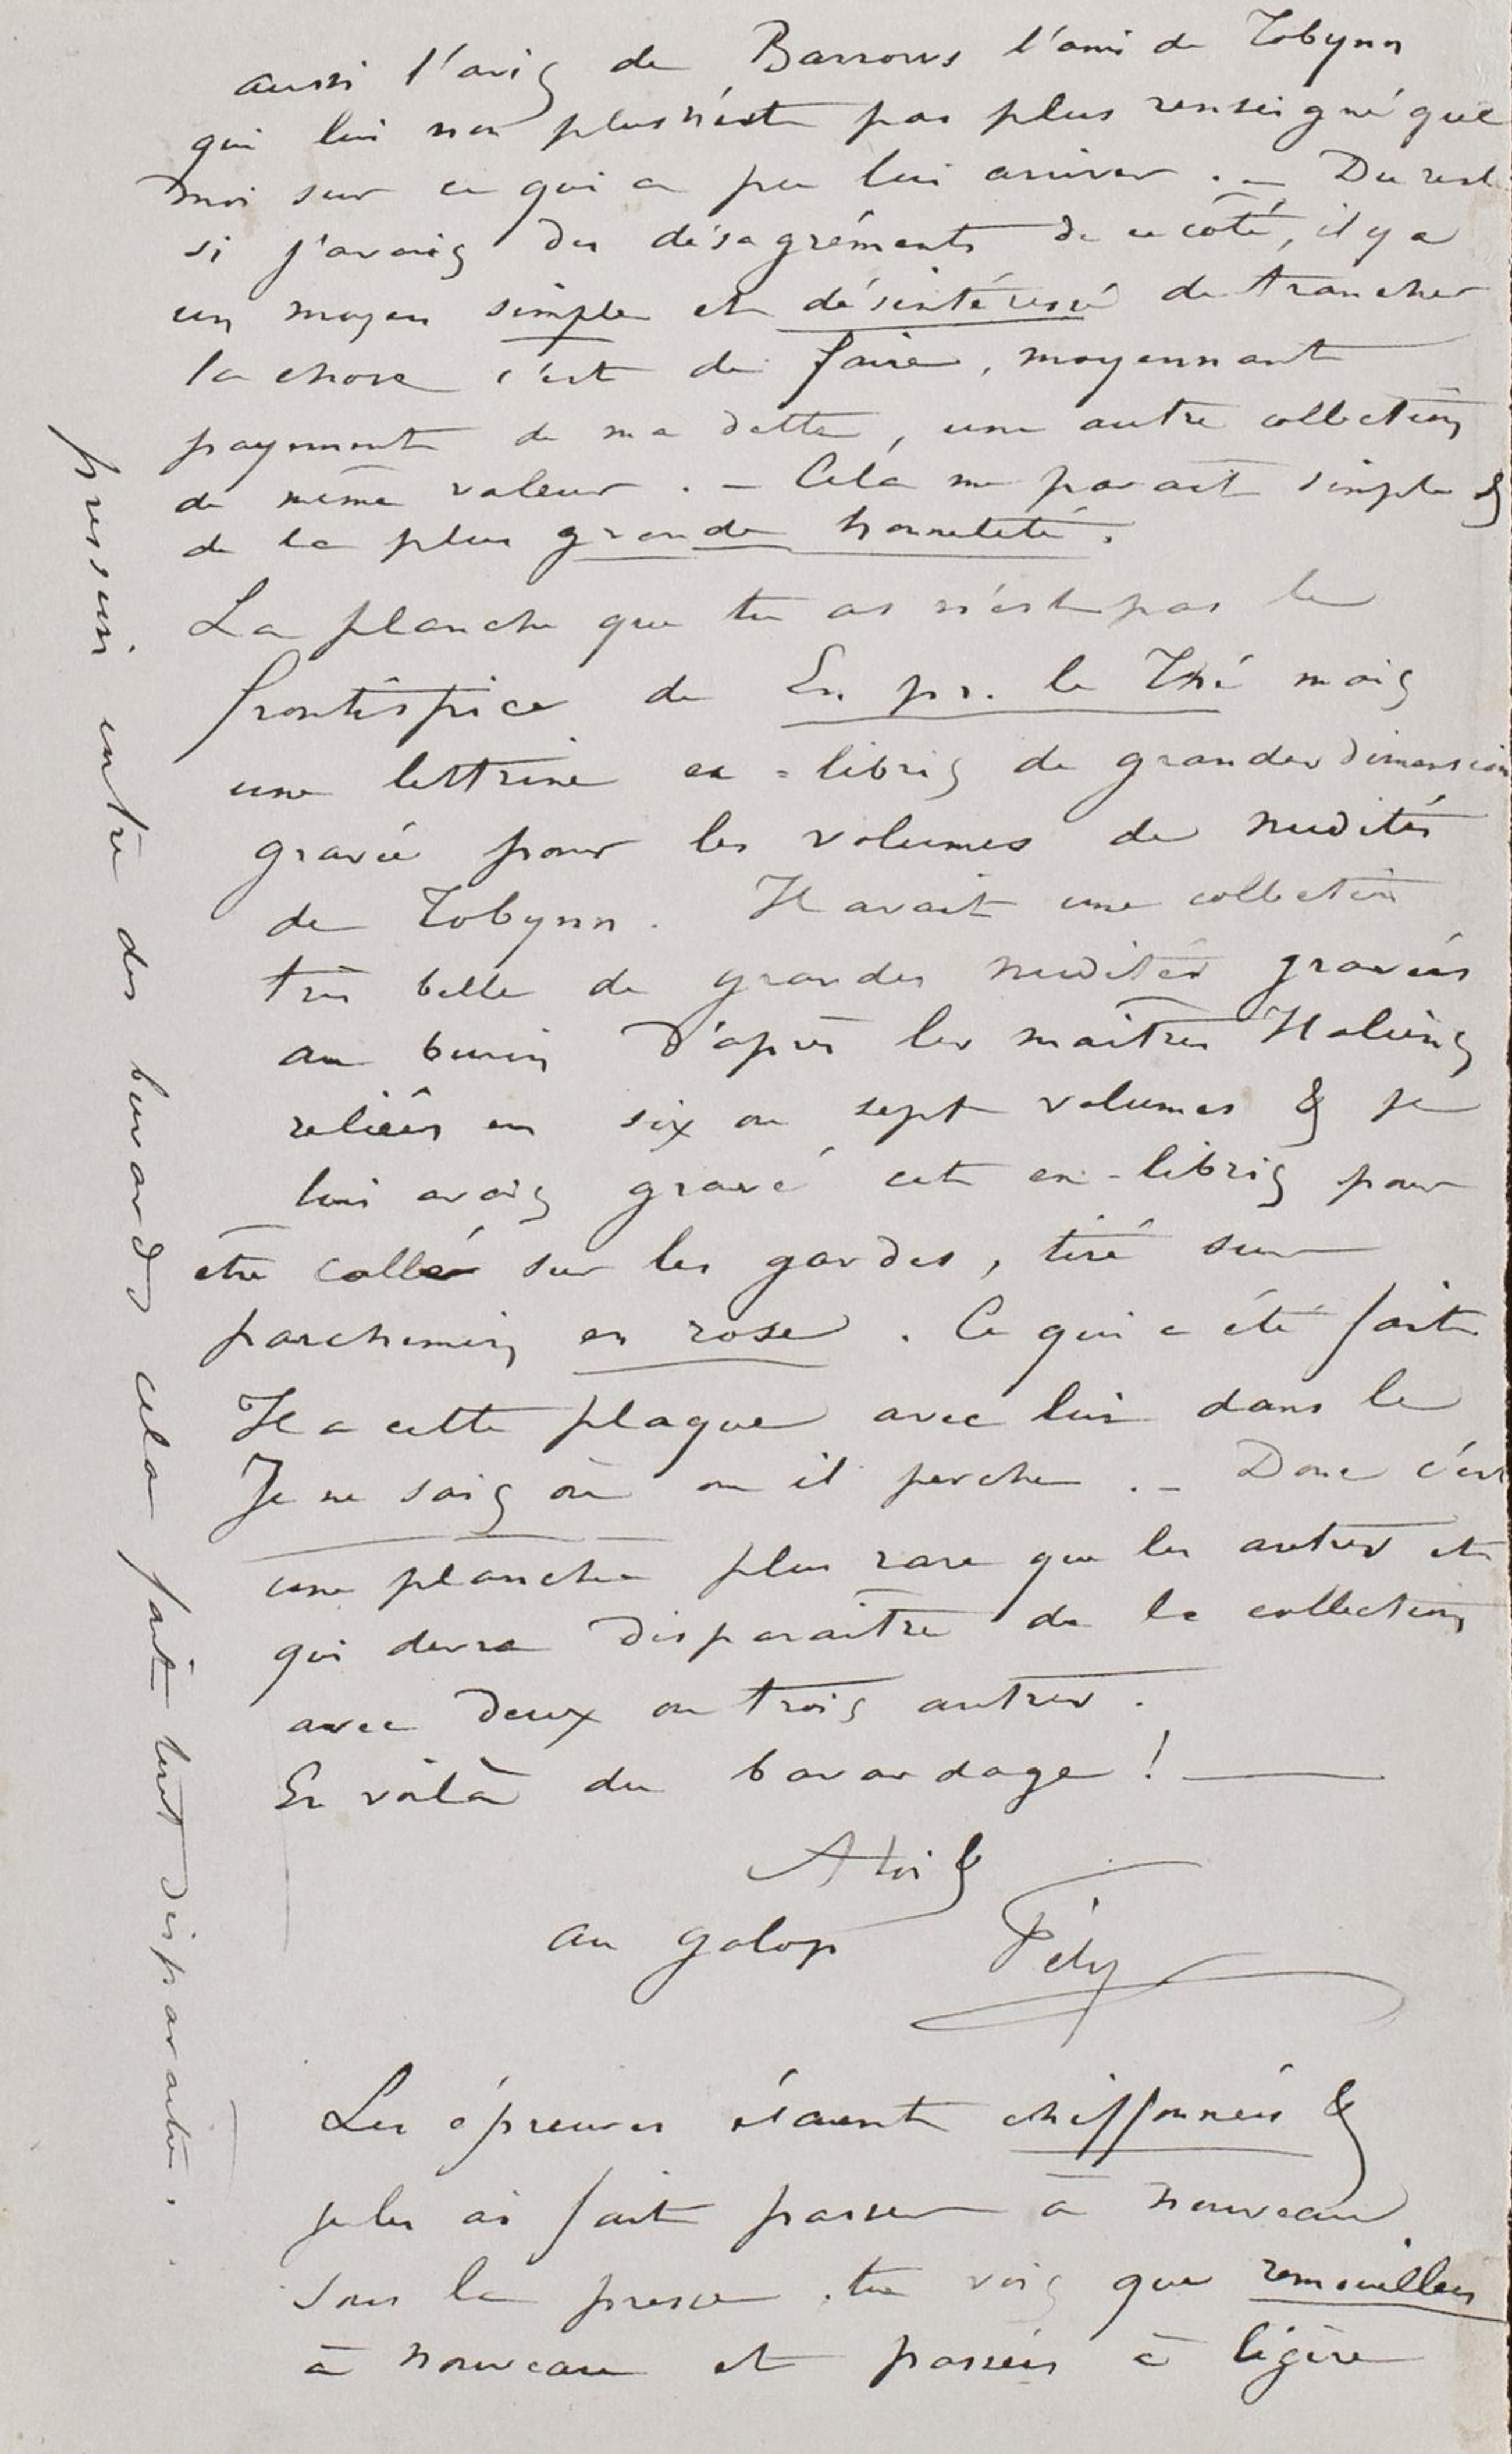 aussi l'avis de Barrows l'ami de Tobynn
qui lui non plus n'est pas plus renseigné que
moi sur ce qui a pu lui arriver . — Du reste
si j'avais des désagréments de ce côté, il y a
un moyen simple et désintéressé de trancher
la chose c'est de faire, moyennant
payement de ma dette, une autre collection
de même valeur . — Cela me parait simple &
de la plus grande honnêteté.
La planche que tu as n'est pas le
frontispice de En pr. le Thé mais
une lettrine ex=libris de grande dimension
gravée pour les volumes de nudités
de Tobynn. Il avait une collection
très belle de grandes nudités gravées
au burin d'après les maîtres Italiens
reliées en six ou sept volumes & je
lui avais gravé cet ex-libris pour
être collé sur les gardes, tiré sur
parchemin en rose . Ce qui a été fait
Il a cette plaque avec lui dans le
Je ne sais où ou il perche . — Donc c'est
une planche plus rare que les autres et
qui devra disparaitre de la collection
avec deux ou trois autres .
En voilà du bavardage ! —
A toi &
au galop Fély
Les épreuves étaient chiffonnées &
je les ai fait passer à nouveau
sous la presse . tu vois que remouillées
à nouveau et passées à légère
pression entre des buvards cela fait tout disparaitre .